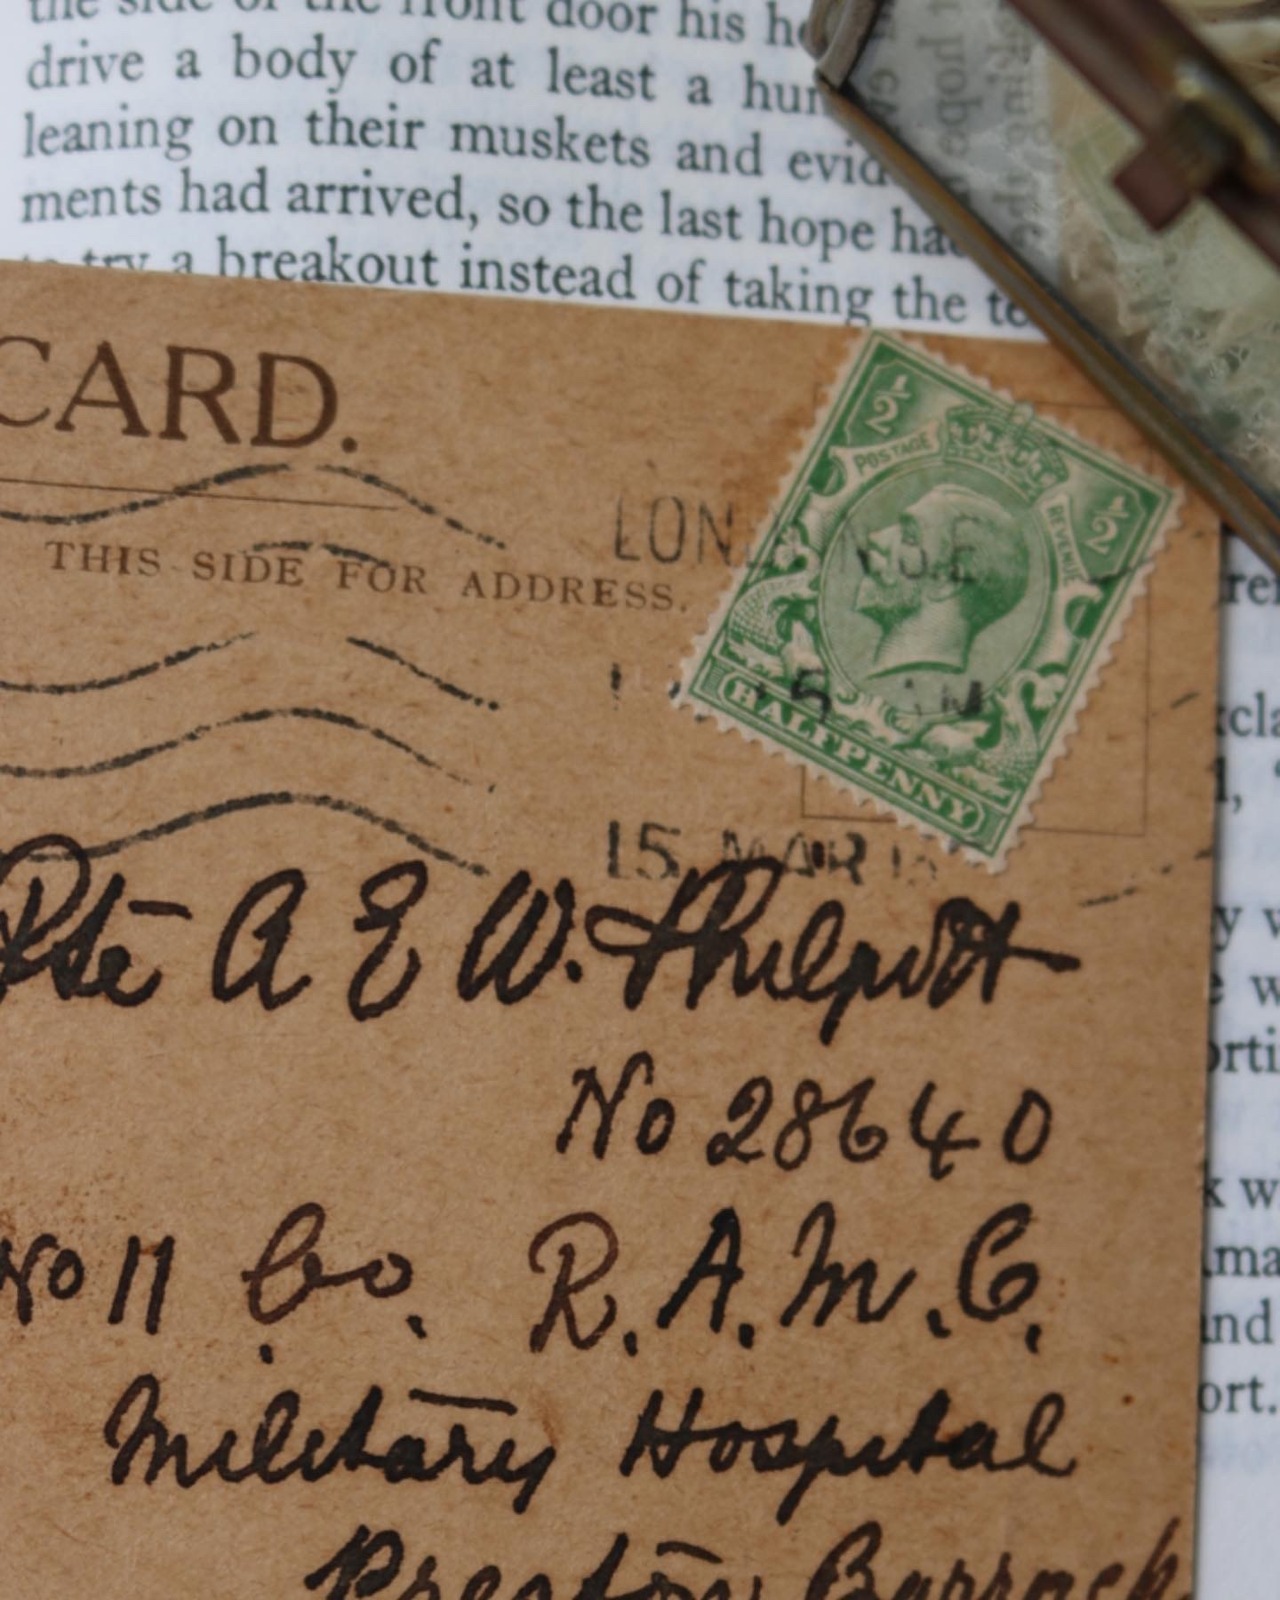 the side of the front door his
drive a body of at least a
leaning on their muskets and
ments had arrived, so the last hope
to try a breakout instead of taking the
CARD.
THIS SIDE FOR ADDRESS.
½
½
POSTAGE
REVENUE
HALFPENNY
15 MAR
Pte A E W. Philpott
No 28640
No 11 Co. R.A.M.C.
Military Hospital
Preston Barrack